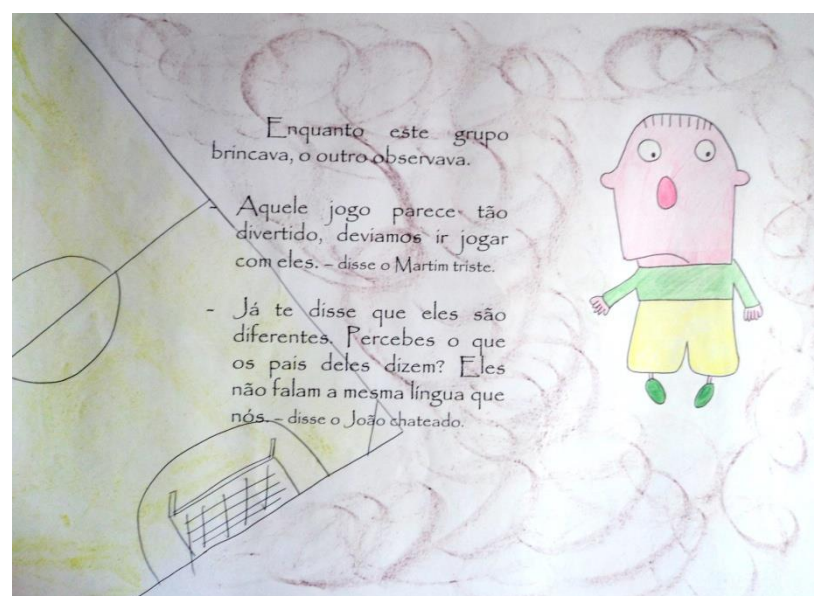 Enquanto este grupo
brincava, o outro observava.
- Aquele jogo parece tão
divertido, deviamos ir jogar
com eles. – disse o Martim triste.
- Já te disse que eles são
diferentes. Percebes o que
os pais deles dizem? Eles
não falam a mesma língua que
nós. – disse o João chateado.